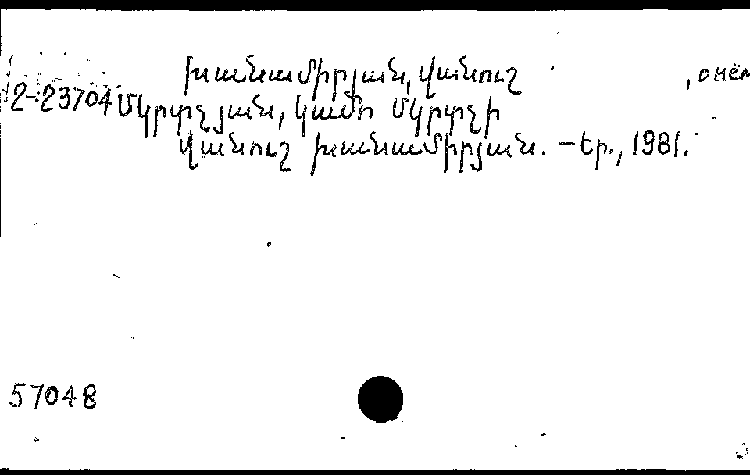 Խանամիրյան, Վանուշ , о нём
2-23704 Մկրտչյան, Կամո Մկրտչի
Վանուշ Խանամիրյան. – Եր., 1981.
57048